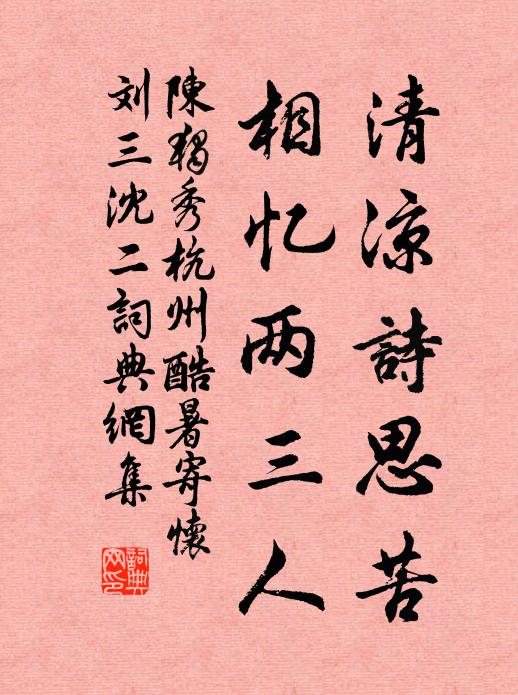 清涼詩思苦
相忆两三人
陳獨秀杭州酷暑寄懷
刘三沈二詞典網集
詞典網印